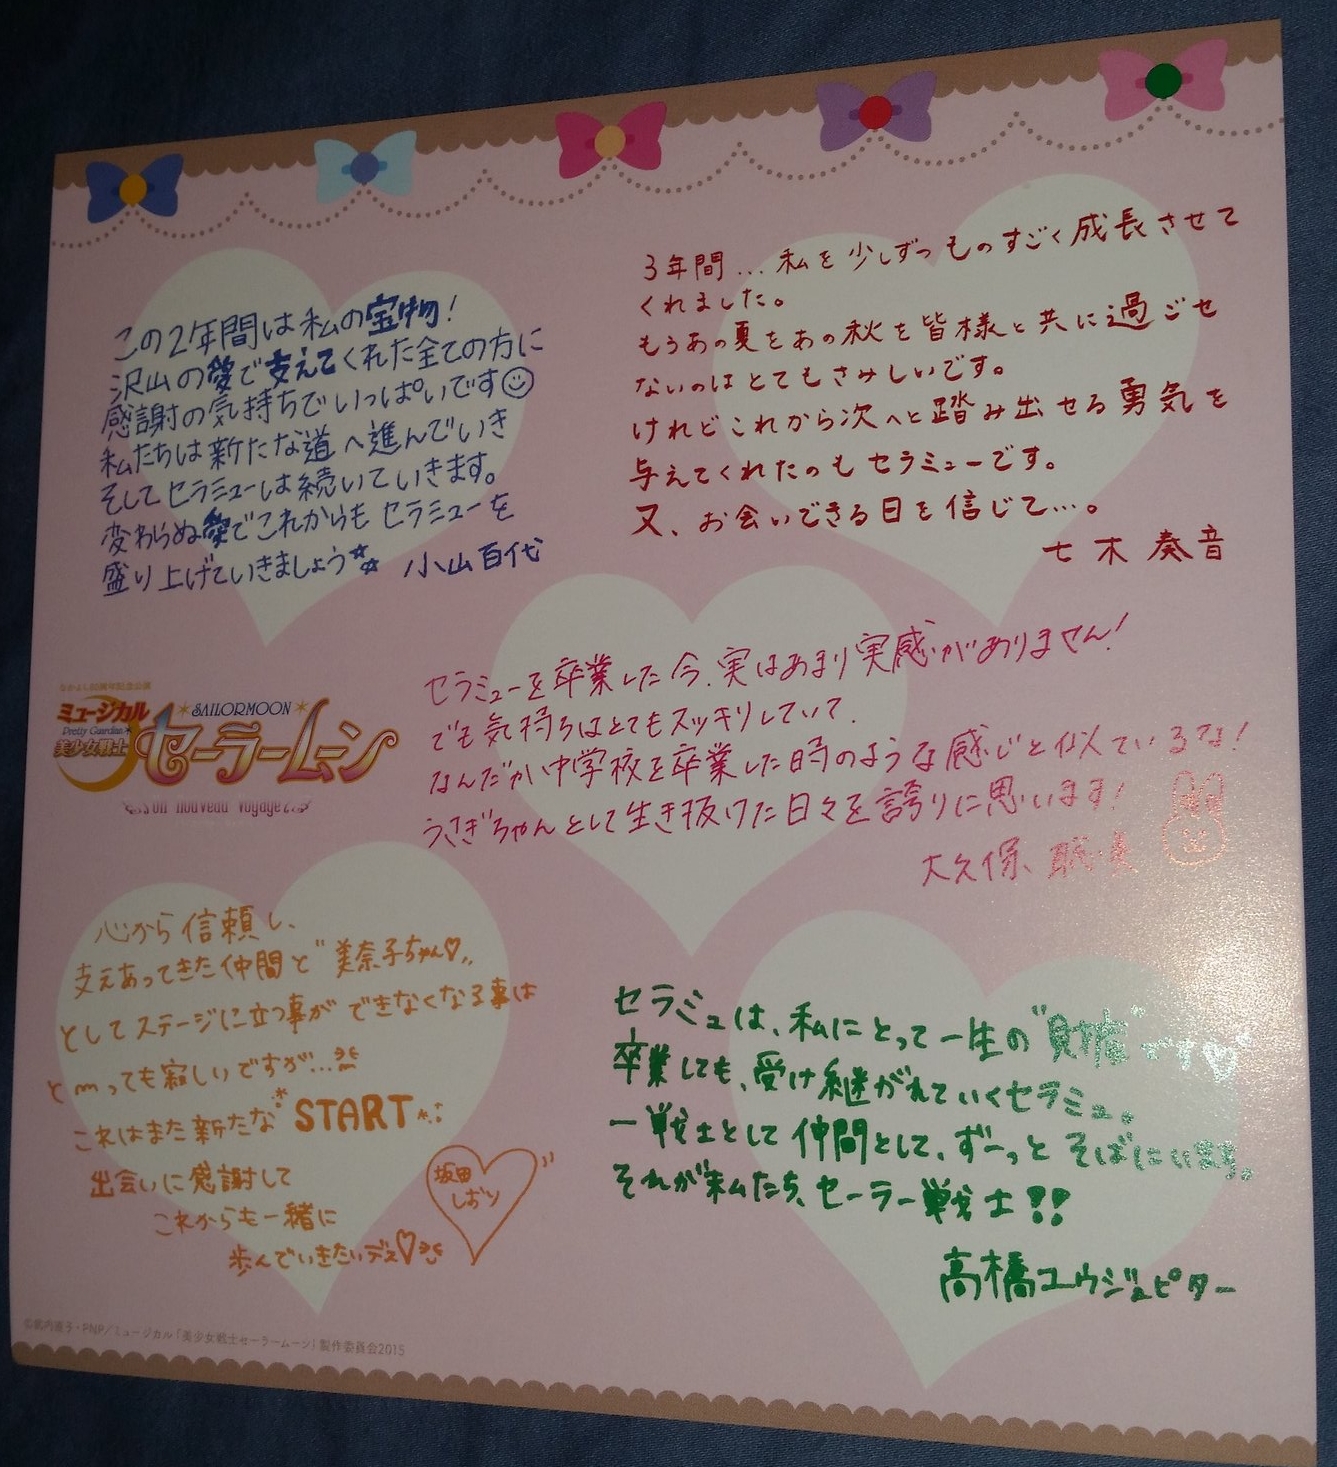 この2年間は私の宝物!
沢山の愛で支えてくれた全ての方に
感謝の気持ちでいっぱいです
私たちは新たな道へ進んでいき
そしてセラミューは続いていきます。
変わらぬ愛でこれからもセラミューを
盛り上げていきましょう☆
小山百代
3年間...私を少しずつものすごく成長させて
くれました。
もうあの夏をあの秋を皆様と共に過ごせ
ないのはとてもさみしいです。
けれどこれから次へと踏み出せる勇気を
与えてくれたのもセラミューです。
又、お会いできる日を信じて...。
七木奏音
セラミューを卒業した今、実はあまり実感がありません!
でも気持ちはとてもスッキリしていて、
なんだか中学校を卒業した時のような感じと似ているな!
うさぎちゃんとして生き抜けた日々を誇りに思います!
大久保聡美
なかよし60周年記念公演
ミュージカル
Pretty Guardian
美少女戦士
SAILORMOON
セーラームーン
Un nouveau voyage
心から信頼し、
支えあってきた仲間と"美奈子ちゃん♡"
としてステージに立つ事ができなくなる事は
とmっても寂しいですが...
これはまた新たなSTART
出会いに感謝して
これからも一緒に
歩んでいきたいデス♡
坂田
しおり
セラミュは、私にとって一生の"財産"です♡
卒業しても、受け継がれていくセラミュ。
一戦士として仲間として、ずーっとそばにいます。
それが私たち、セーラー戦士!!
高橋ユウジュピター
©武内直子・PNP/ミュージカル「美少女戦士セーラームーン」製作委員会2015